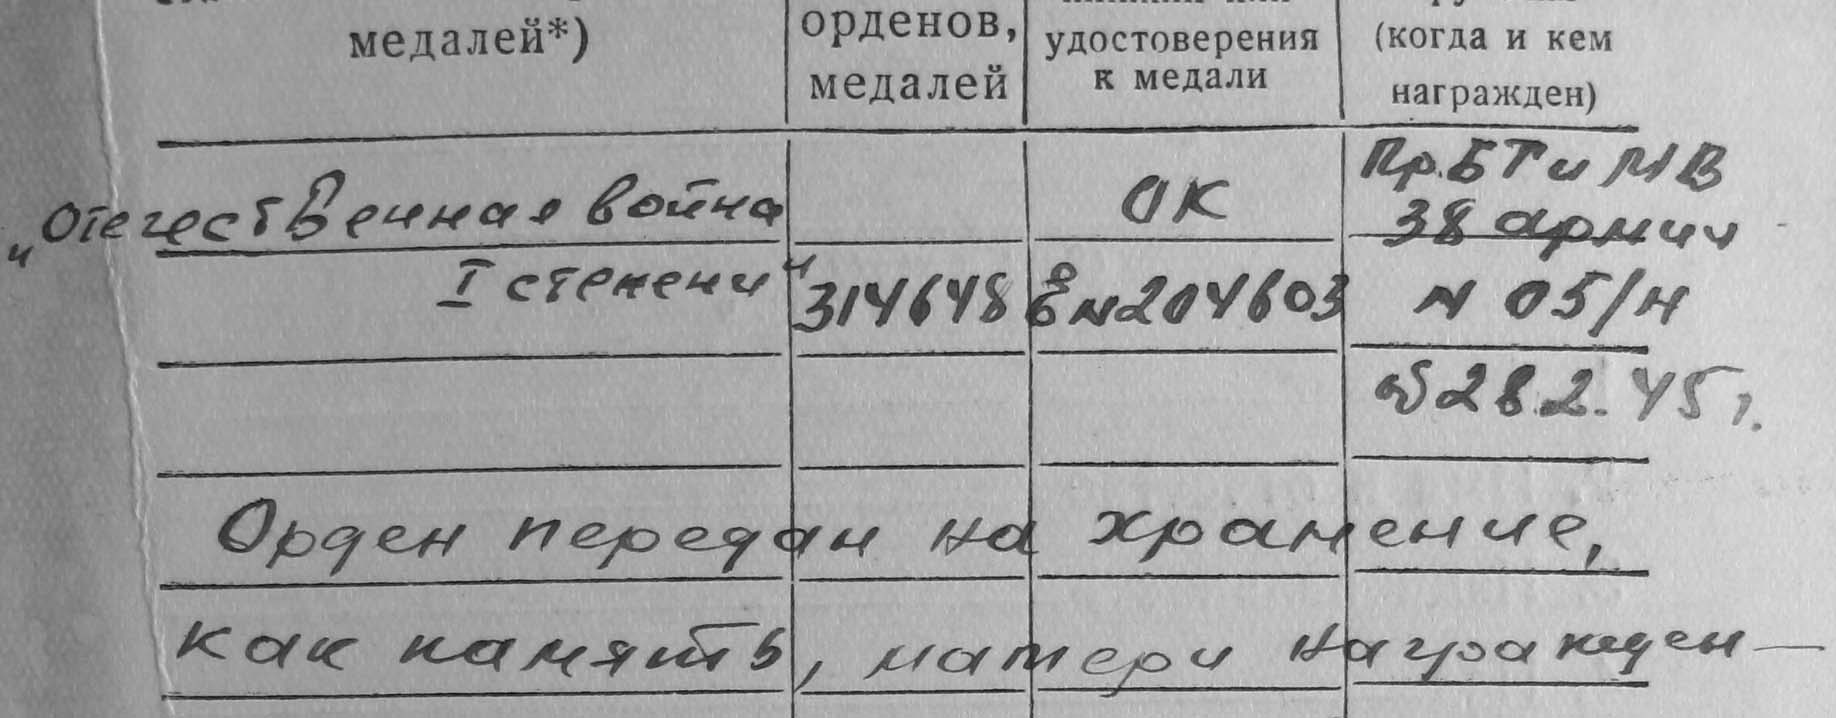 медалей*)
орденов,
медалей
удостоверения
к медали
(когда и кем
награжден)
„Отечественная война
I степени“
314648
ОК
№204603
Пр. БТ и МВ
38 армии
N 05/н
от 28.2.45 г.
Орден передан на хранение,
как память, матери награжден—